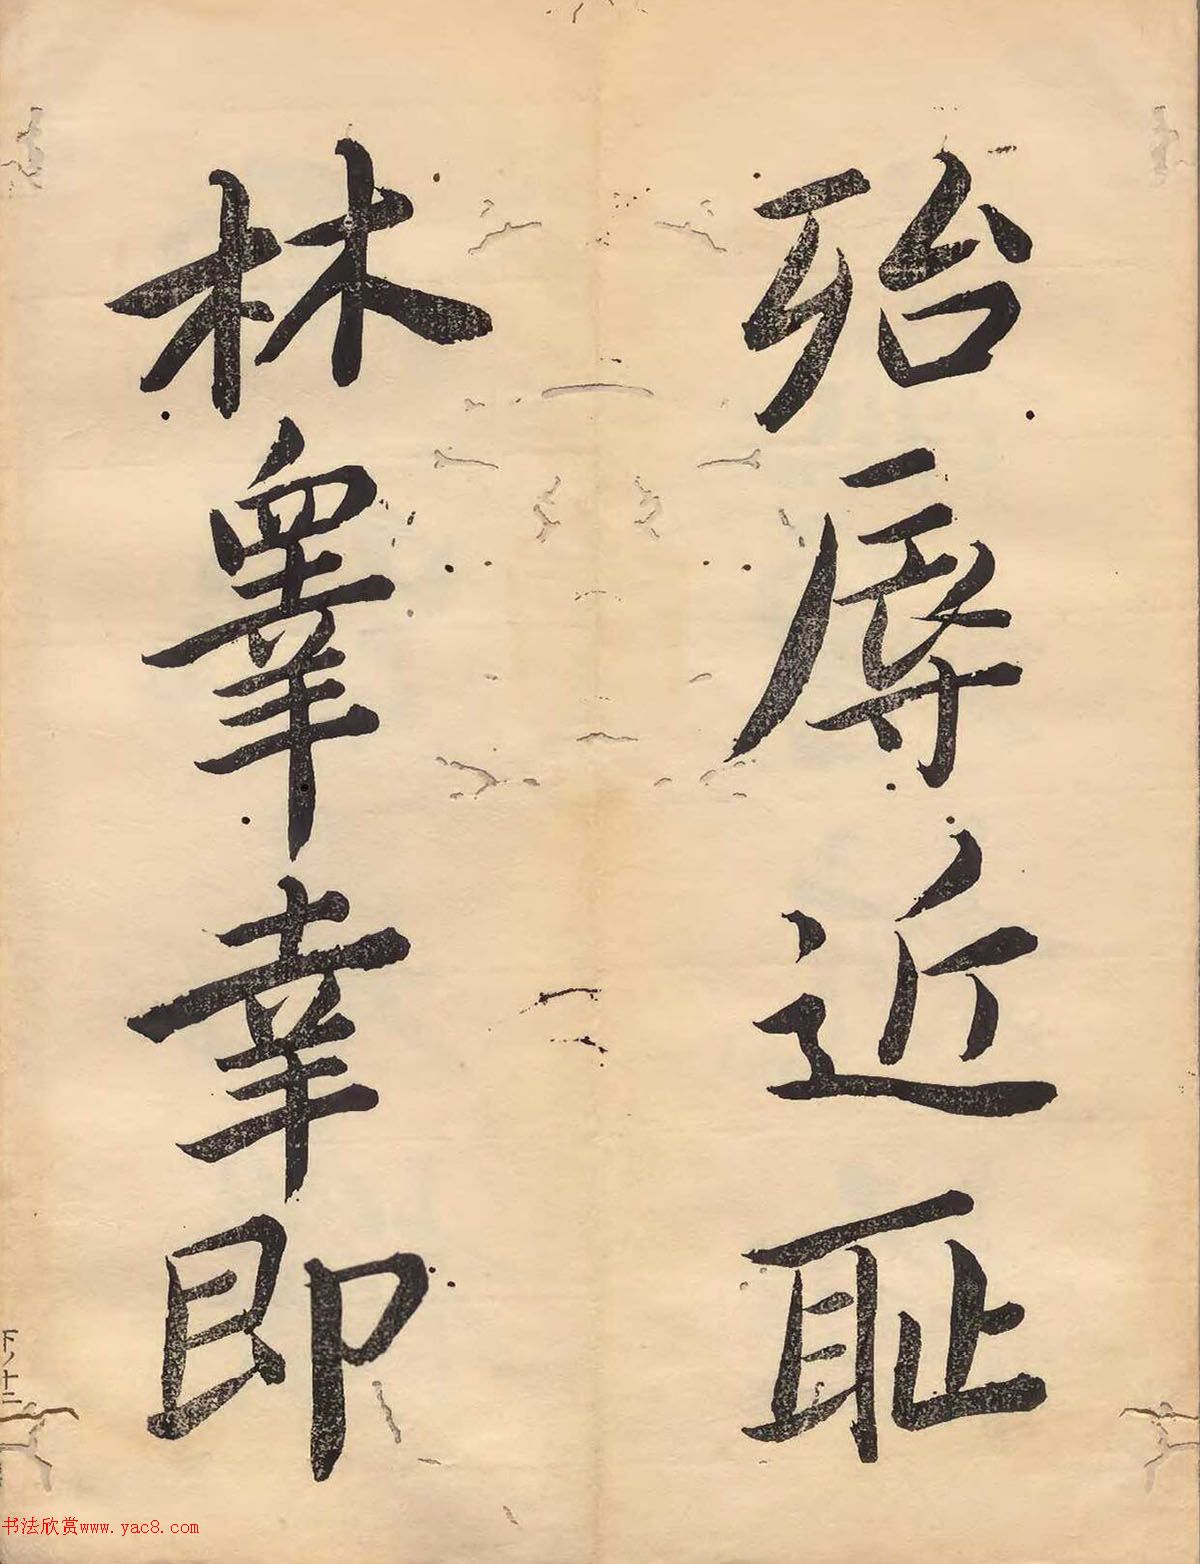 殆辱近耻
林睾幸即
下ノ十二
书法欣赏www.yac8.com